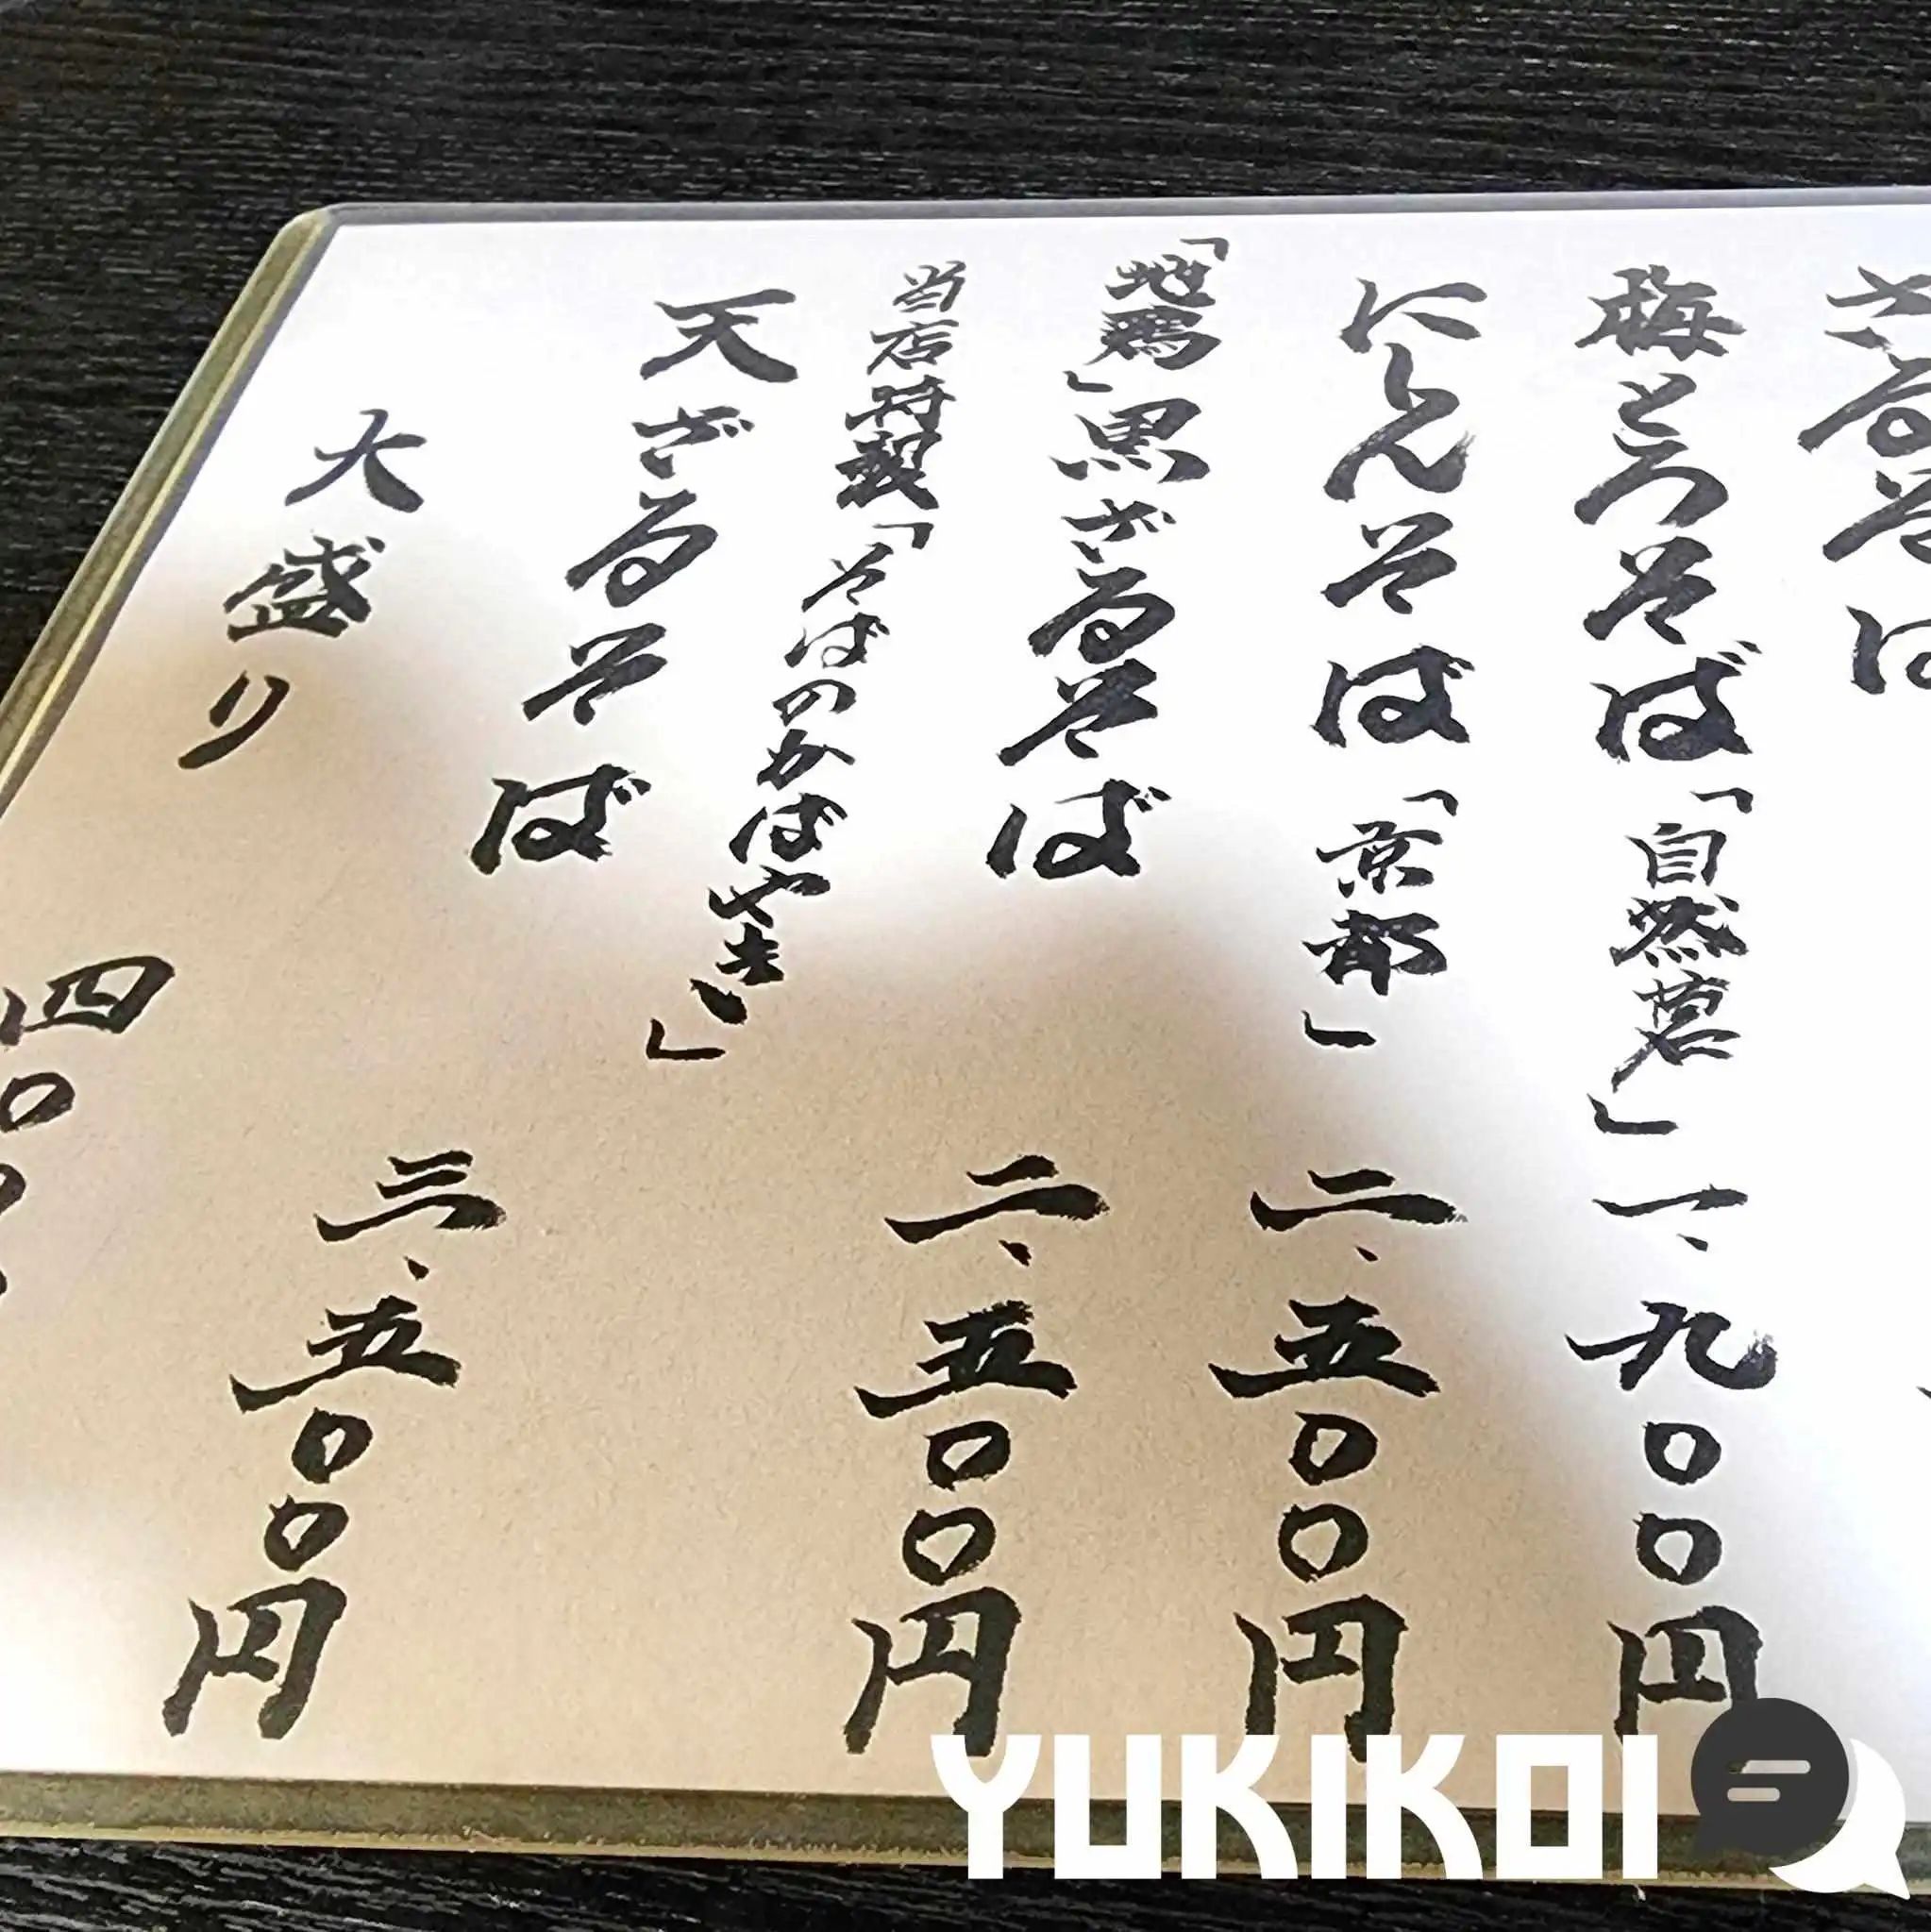 ざるそば
梅とろそば「自然薯」一、九〇〇円
にしんそば「京都」二、五〇〇円
「地鶏」黒ざるそば 二、五〇〇円
当店特製「そばのかばやき」
天ざるそば 三、五〇〇円
大盛り 四〇〇
YUKIKOI